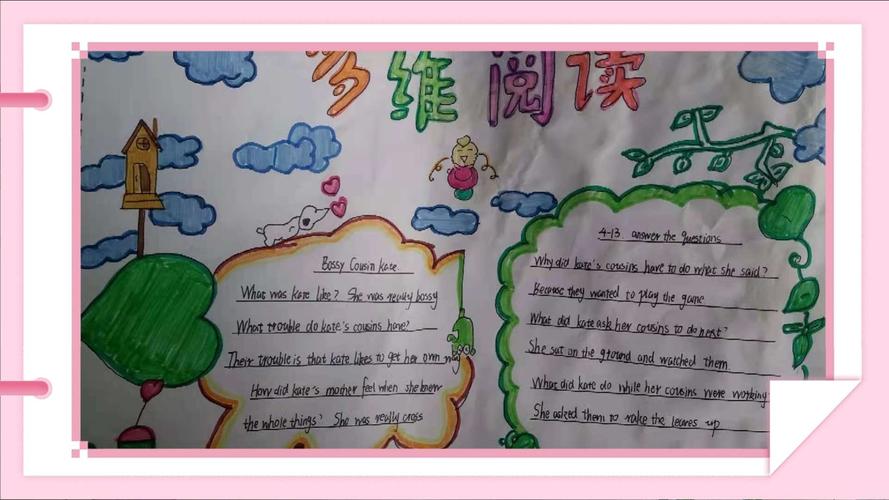 多维阅读
Bossy Cousin Kate.
What was kate like? She was really bossy
What trouble do kate's cousins have?
Their trouble is that kate likes to get her own way
How did kate's mother feel when she knew
the whole things? She was really cross
4-13. answer the questions
Why did kate's cousins have to do what she said?
Because they wanted to play the game
What did kate ask her cousins to do next?
She sat on the ground and watched them.
What did kate do while her cousins were working?
She asked them to rake the leaves up